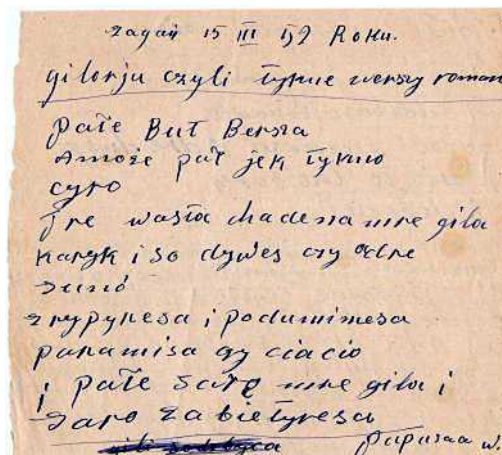 Żagań 15 III 52 Roku.
gilorja czyli tykne wersy roman
pałe But Bersza
Amoże pał jek tykno
cyro
Tre wasta chadena mre gila
Karyk i so dywes czy
i podumimesa
panamisa cy ciacio
i pałe mre gila i
Saro zabistyresa
Papusza w.